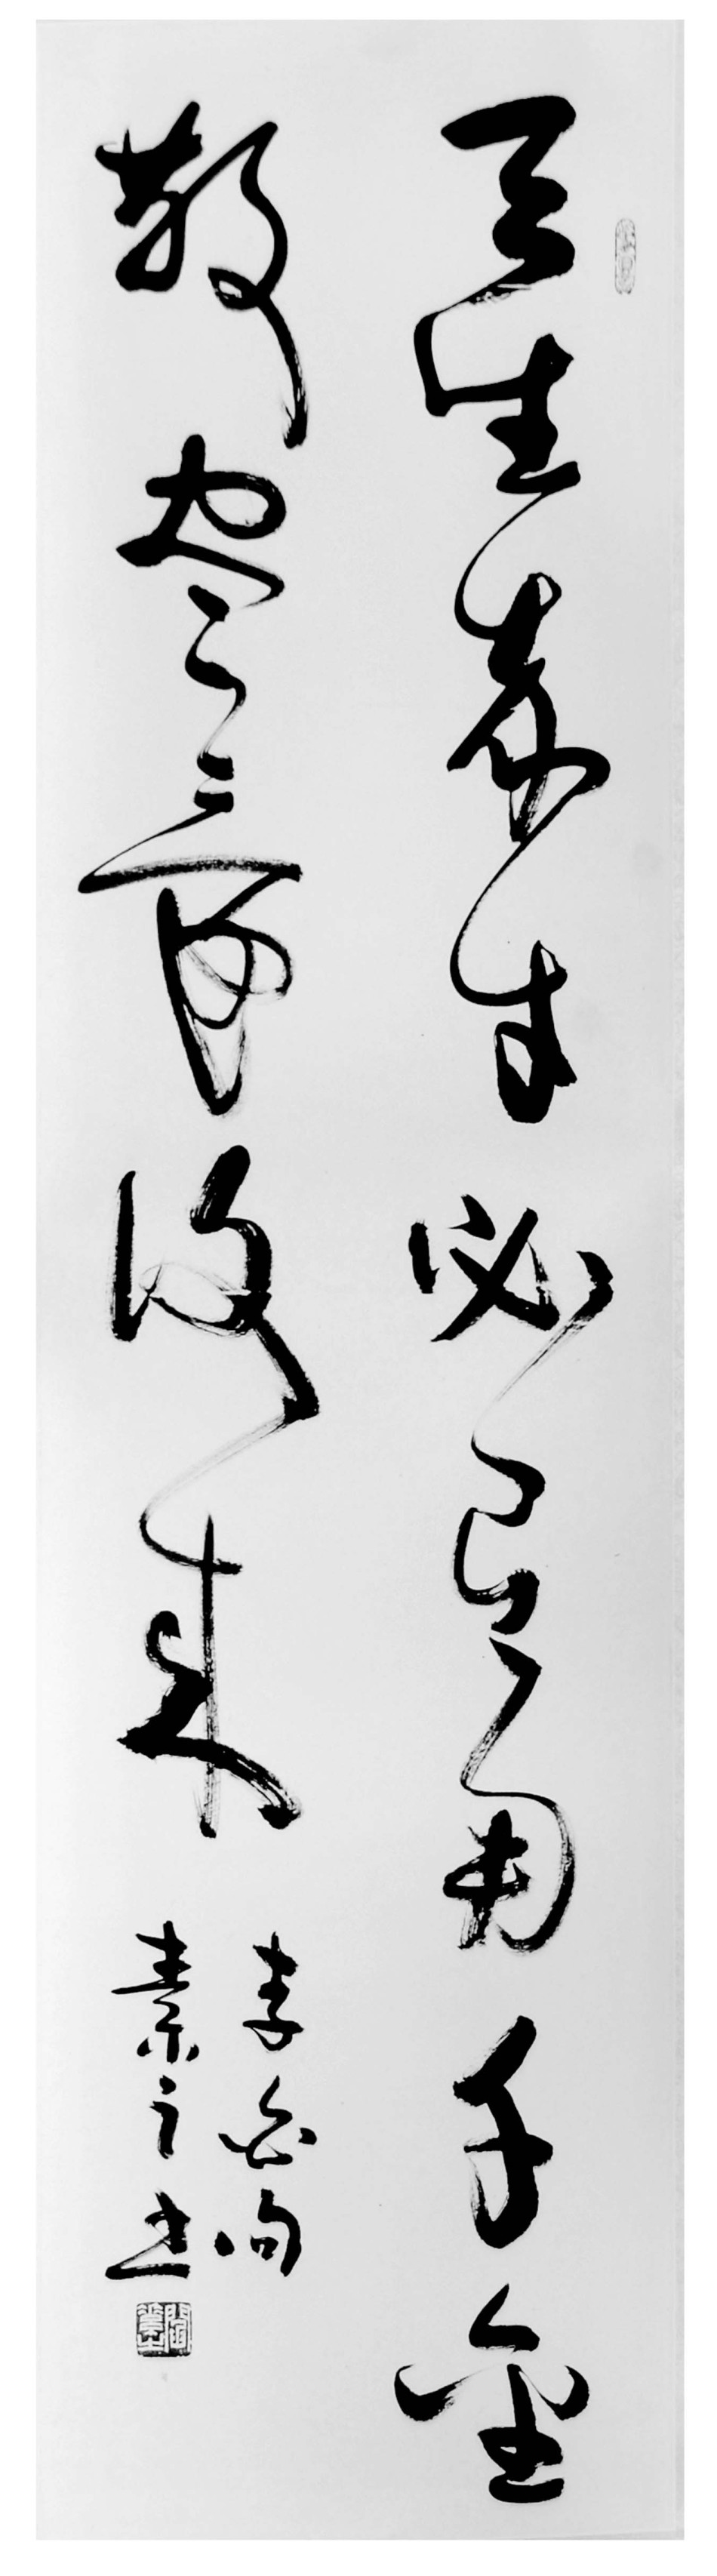 天生我才必有用千金
散尽還復来
李白句
素之书